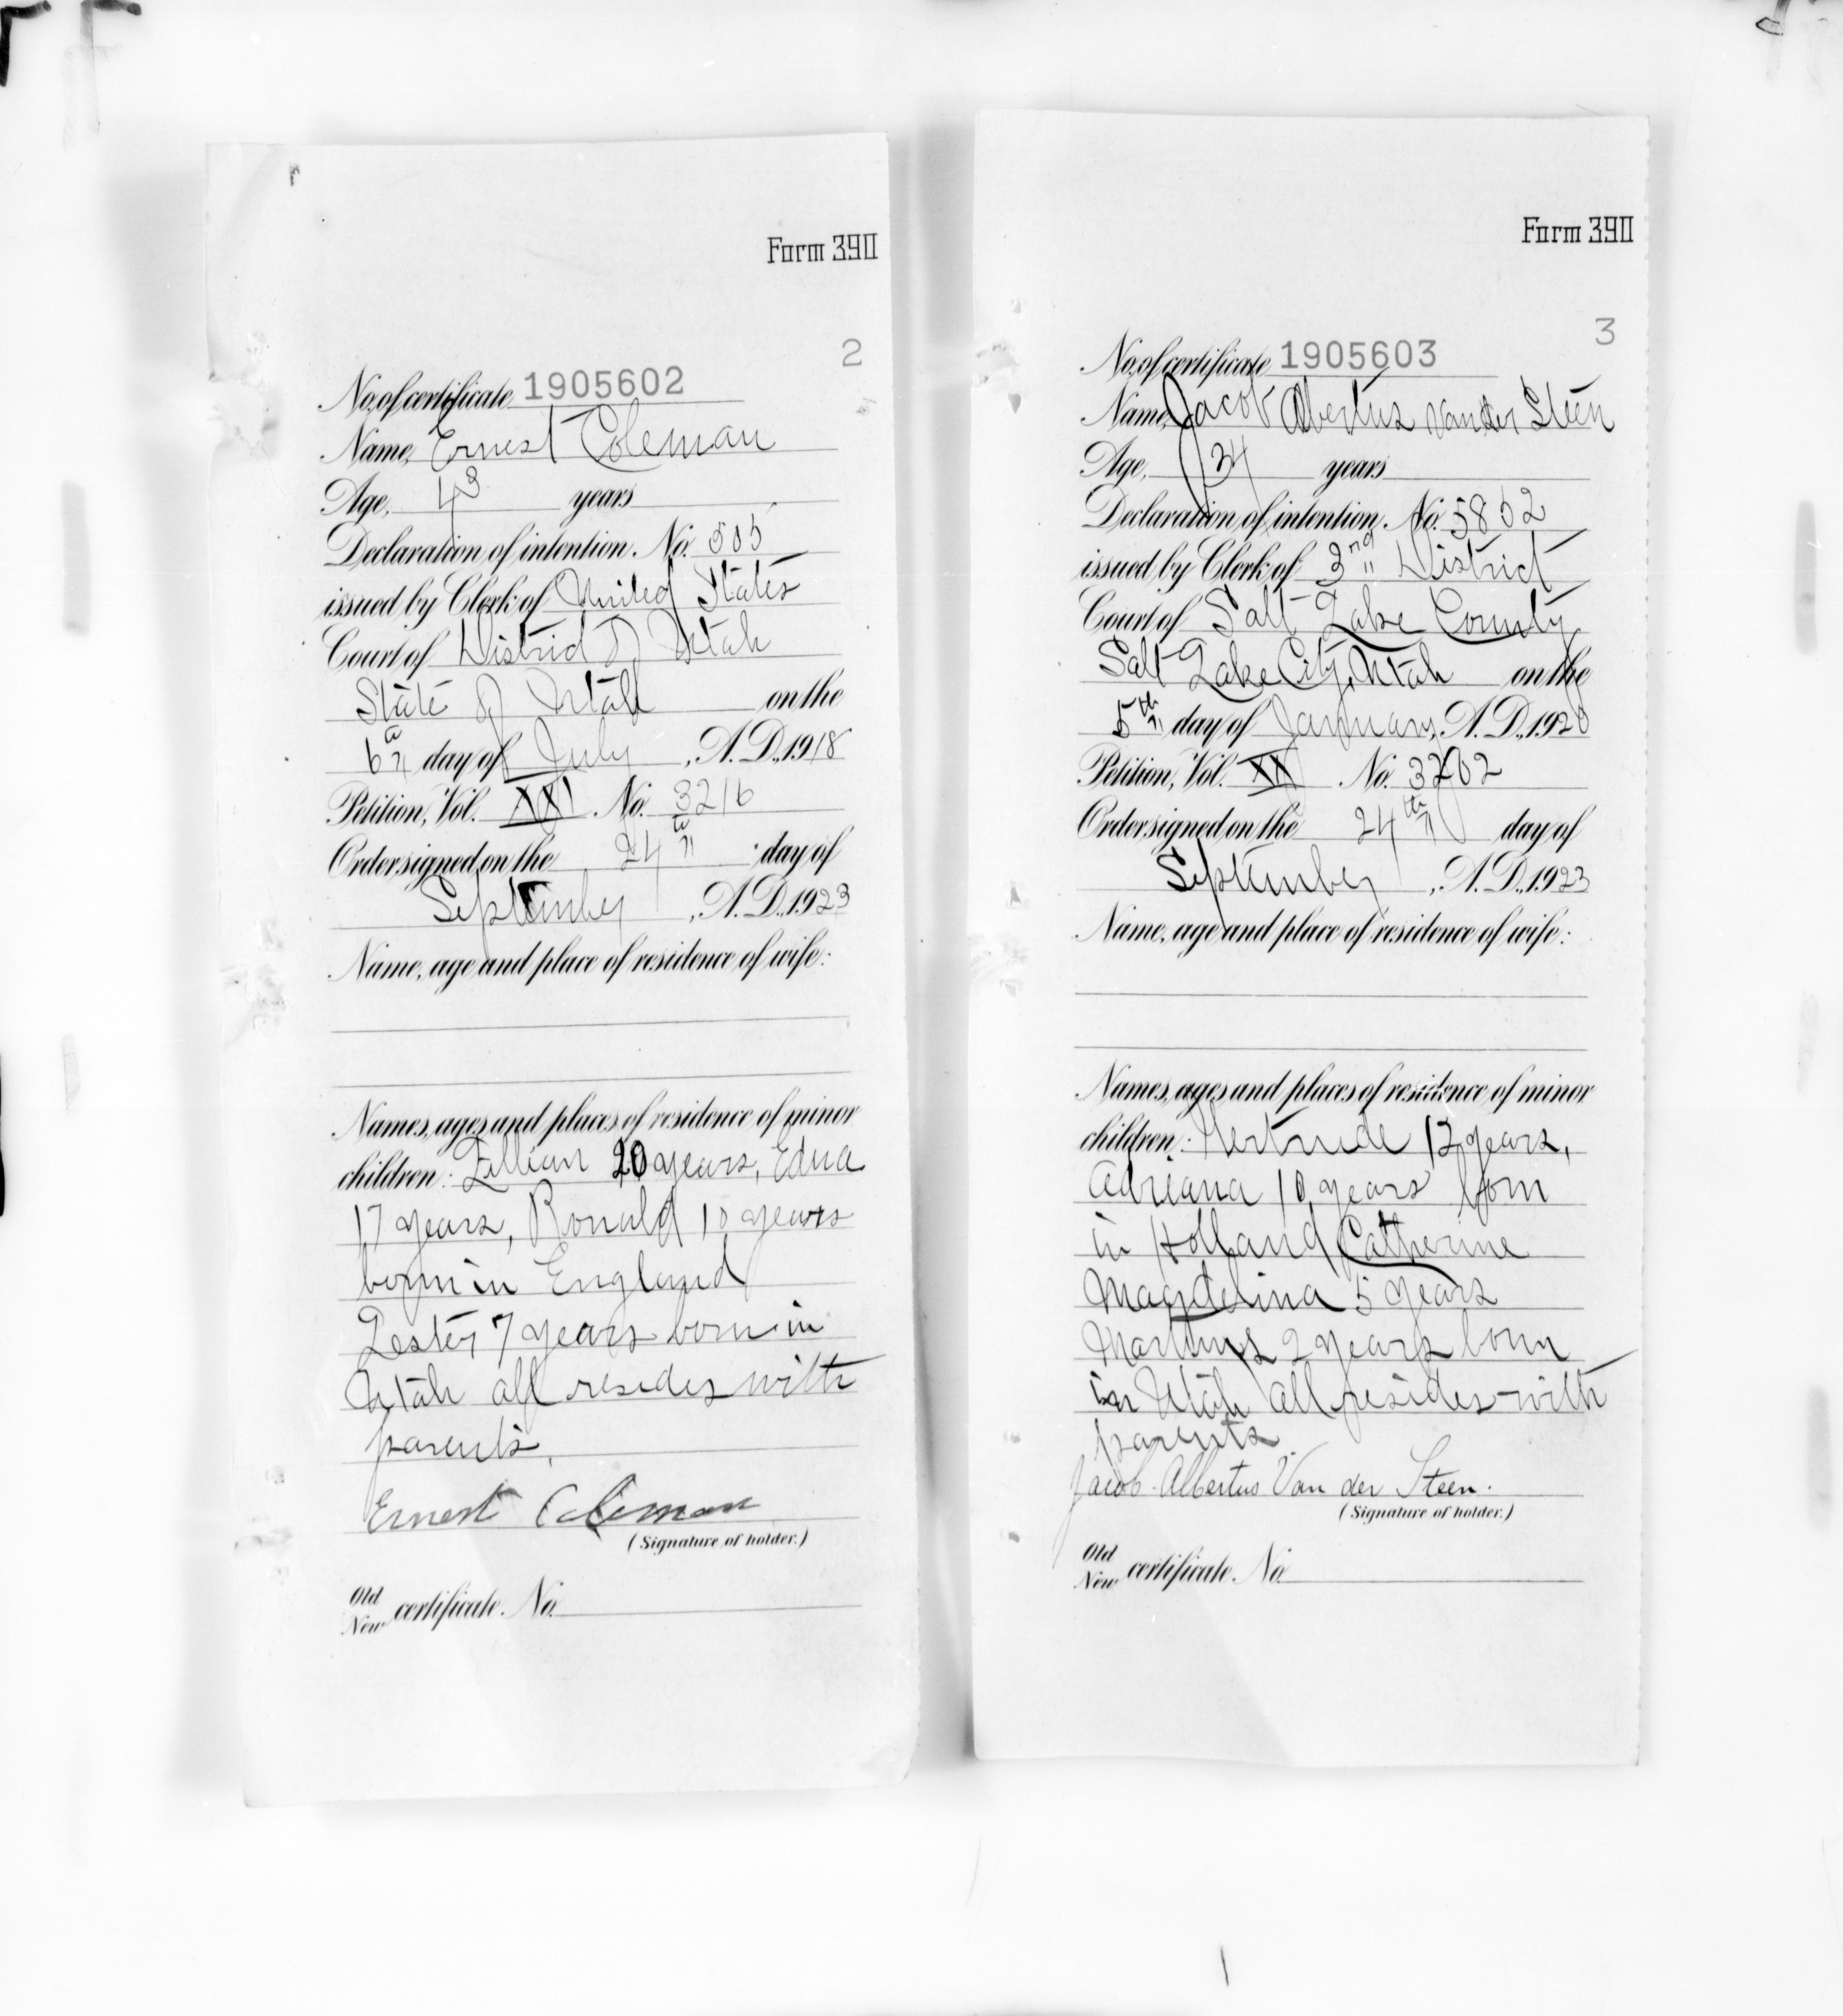 Form 390
2
No. of certificate 1905602
Name, Ernest Coleman
Age, 43 years
Declaration of intention, No. 505
issued by Clerk of United States
Court of District of Utah
State of Utah on the
6th day of July, A.D., 1918
Petition, Vol. XXI No. 3216
Order signed on the 24th day of
September, A.D., 1923
Name, age and place of residence of wife:
Names, ages and places of residence of minor
children: Lillian 20 years, Edna
17 years, Ronald 10 years
born in England
Lester 7 years born in
Utah all resides with
parents.
Ernest Coleman
(Signature of holder.)
Old
New certificate, No.
Form 390
3
No. of certificate 1905603
Name, Jacob Albertus Van der Steen
Age, 34 years
Declaration of intention, No. 5862
issued by Clerk of 3rd District
Court of Salt Lake County
Salt Lake City, Utah on the
5th day of January, A.D., 1920
Petition, Vol. XX No. 3202
Order signed on the 24th day of
September, A.D., 1923
Name, age and place of residence of wife:
Names, ages and places of residence of minor
children: Gertrude 12 years,
Adriana 10 years born
in Holland Catherine
Magdelina 5 years
2 years born
in Utah all resides with
parents.
Jacob Albertus Van der Steen.
(Signature of holder.)
Old
New certificate, No.